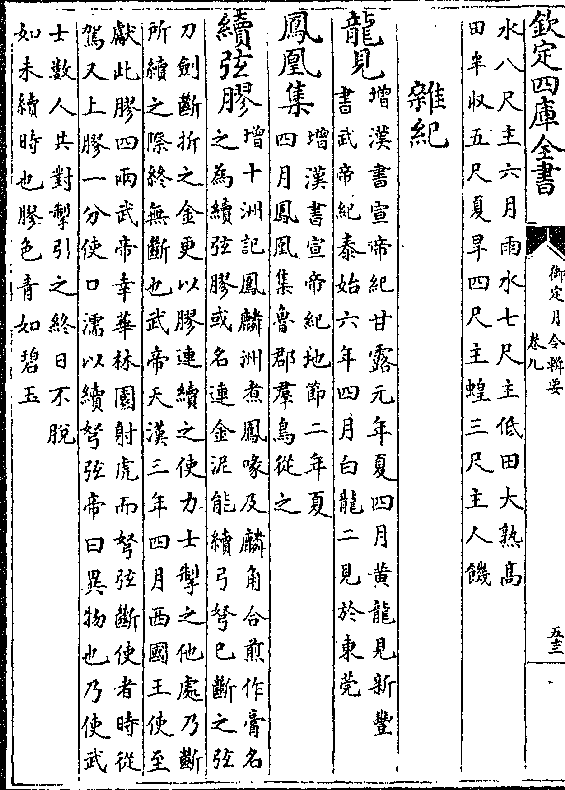 欽定四庫全書
御定月令輯要
卷九
五十三
水八尺主六月雨水七尺主低田大熟高
田半収五尺夏旱四尺主蝗三尺主人饑
雜紀
龍見
增漢書宣帝紀甘露元年夏四月黄龍見新豐
書武帝紀泰始六年四月白龍二見於東莞
鳳凰集
增漢書宣帝紀地節二年夏
四月鳳凰集魯郡羣鳥從之
續弦膠
增十洲記鳳麟洲煮鳳喙及麟角合煎作膏名
之為續弦膠或名連金泥能續弓弩已斷之弦
刀劍斷折之金更以膠連續之使力士掣之他處乃斷
所續之際終無斷也武帝天漢三年四月西國王使至
獻此膠四兩武帝幸華林園射虎而弩弦斷使者時從
駕又上膠一分使口濡以續弩弦帝曰異物也乃使武
士數人共對掣引之終日不脫
如未續時也膠色青如碧玉